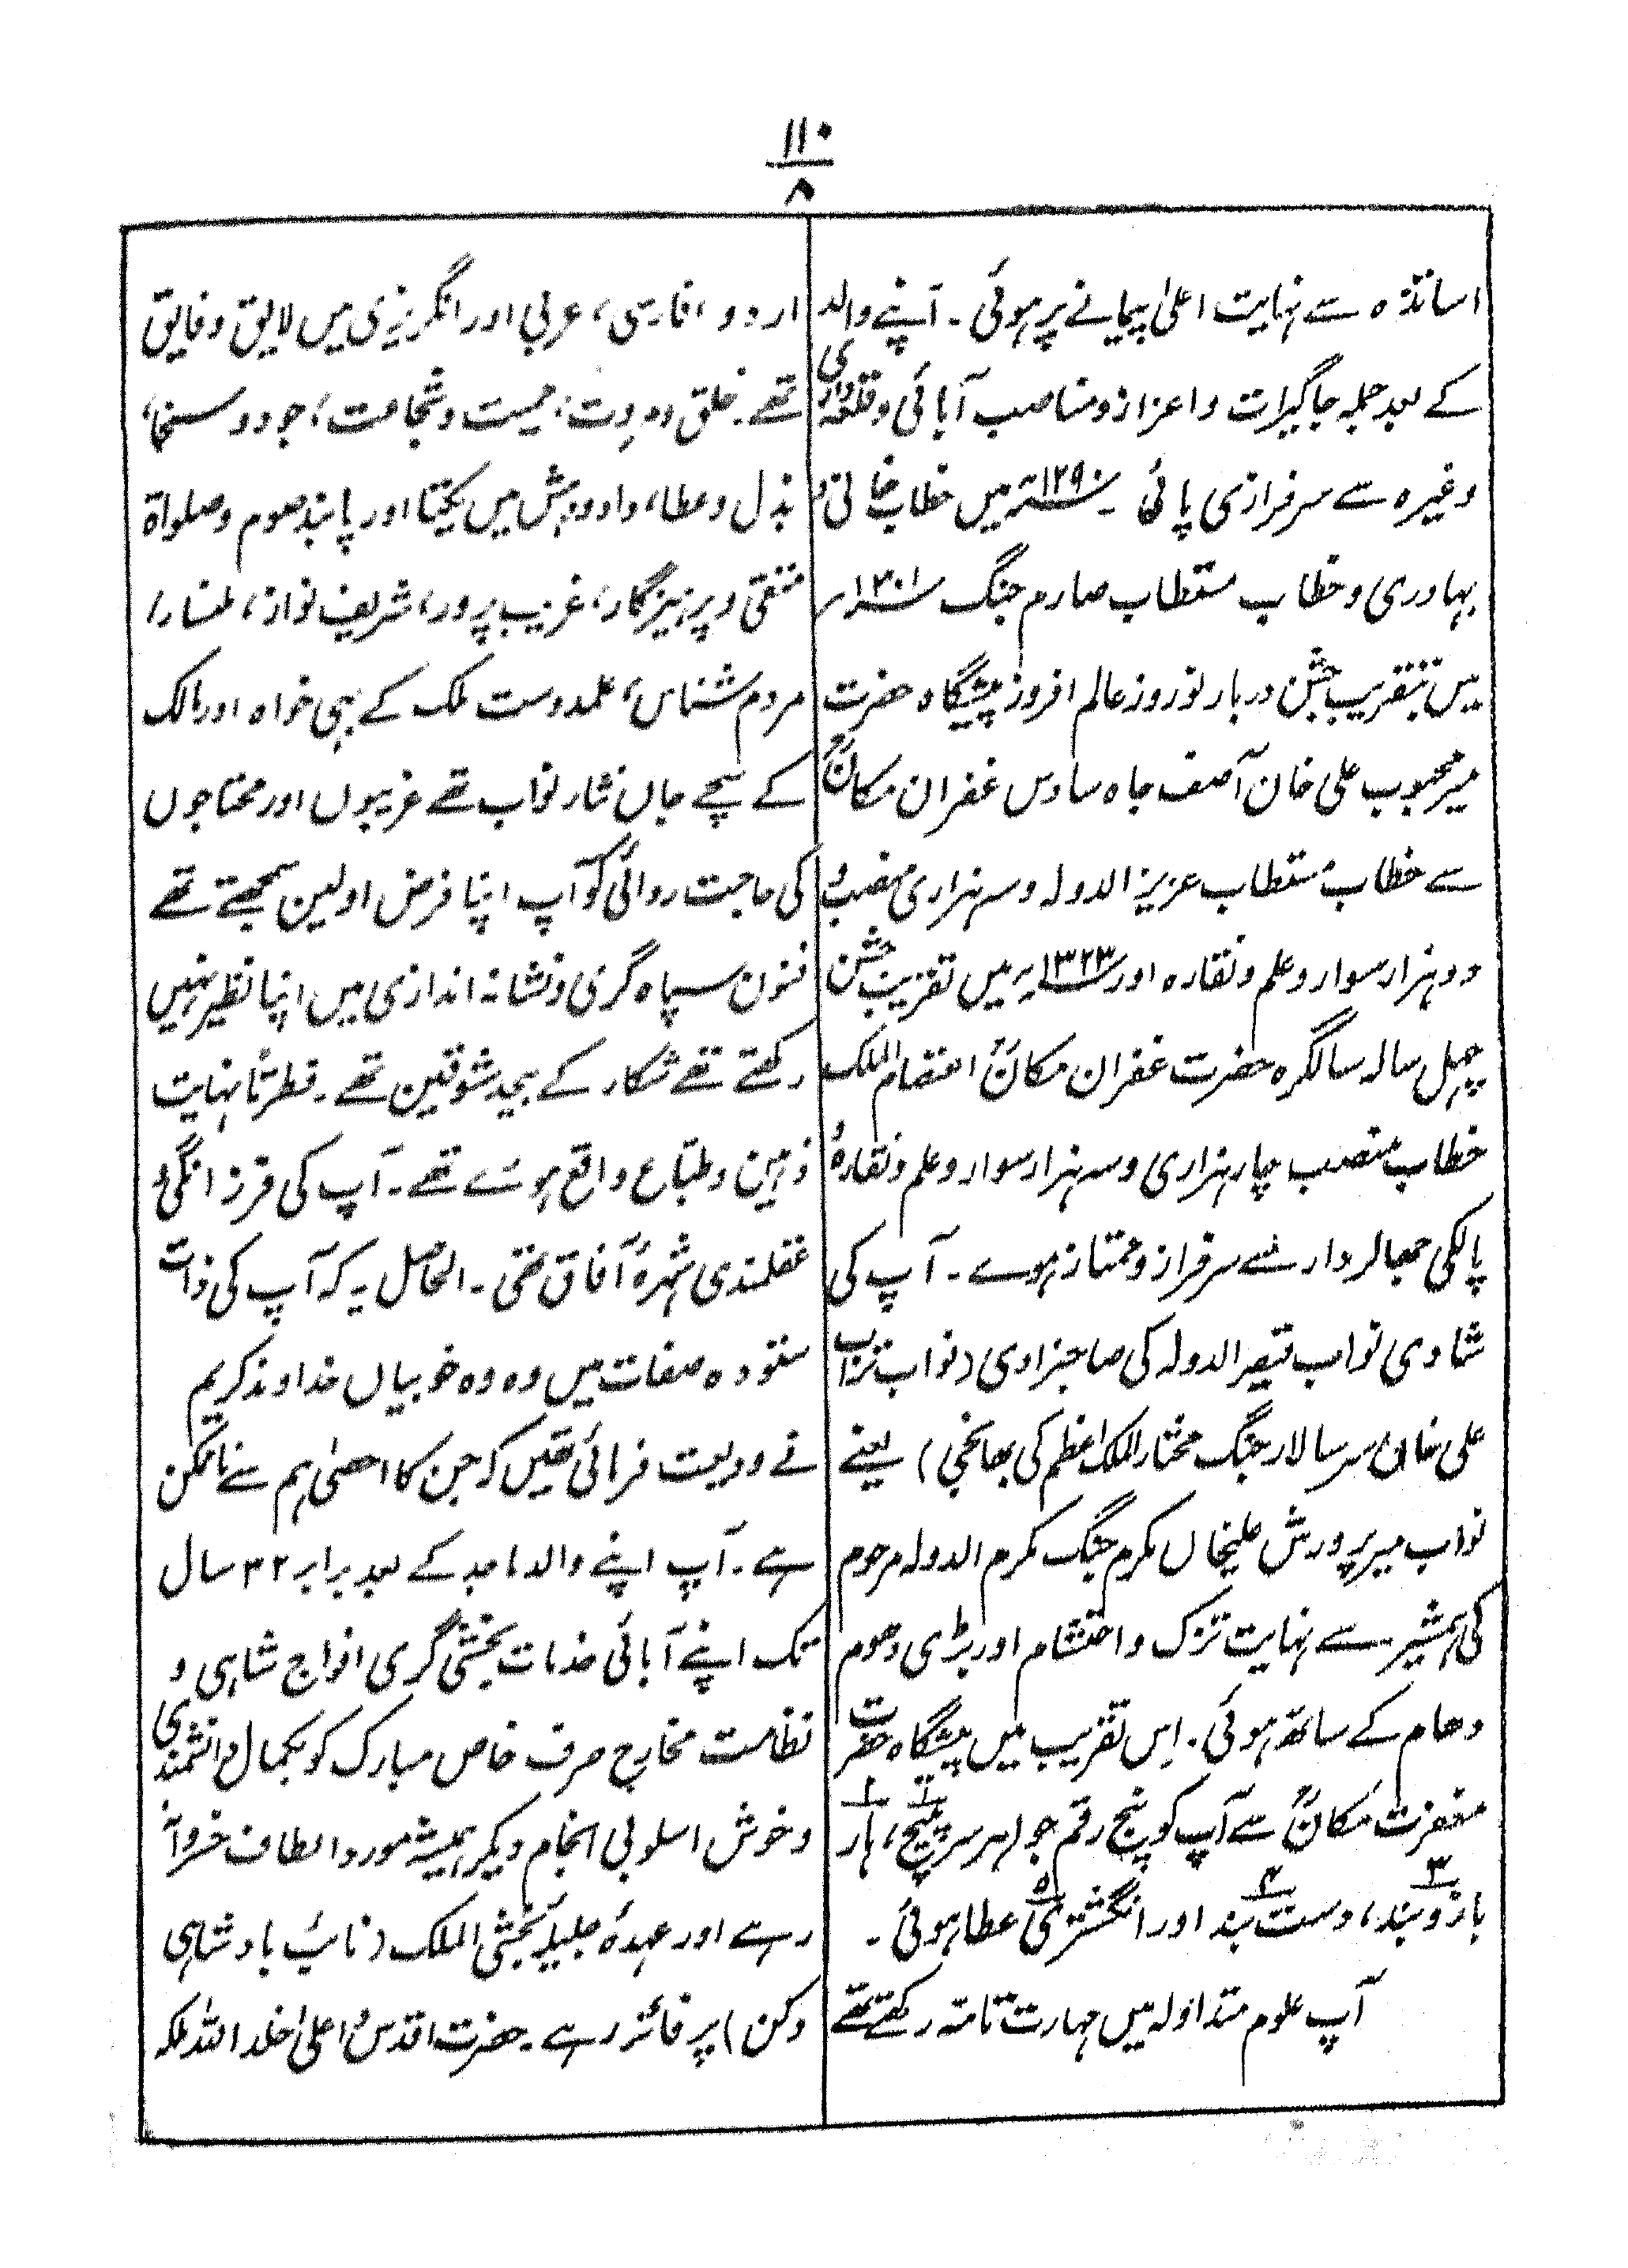 ۱۱۰
۸
اساتذہ سے نہایت اعلیٰ پیمانے پر ہوئی ۔ اپنے والد
کے بعد جملہ جاگیرات و اعزاز و مناصب آبائی و قلعداری
وغیرہ سے سرفرازی پائی ۔ ۱۲۹۰ھ میں خطاب خانی و
بہادری و خطاب مستطاب صارم جنگ ۱۳۰۱ھ
میں بتقریب جشن دربار نوروز عالم افروز پیشگاہ حضرت
میر محبوب علی خان آصف جاہ سادس غفران مکانؒ
سے خطاب مستطاب عزیز الدولہ و سہ ہزاری منصب و
دو ہزار سوار و علم و نقارہ اور ۱۳۲۳ھ میں تقریب جشن
چہل سالہ سالگرہ حضرت غفران مکانؒ اعتصام الملک
خطاب منصب چار ہزاری و سہ ہزار سوار و علم و نقارہ و
پالکی جھالردار سے سرفراز و ممتاز ہوے ۔ آپ کی
شادی نواب نصیر الدولہ کی صاحبزادی (نواب تراب
علی خان سر سالار جنگ مختار الملک اعظم کی بھانجی) یعنے
نواب میر پرورش علیخاں مکرم جنگ مکرم الدولہ مرحوم
کی ہمشیر سے نہایت تزک و احتشام اور بڑی دھوم
دھام کے ساتھ ہوئی ۔ اِس تقریب میں پیشگاہ حضرت
مغفرت مکانؒ سے آپ کو پنج رقم جواہر سرپیچ۱، ہار۲
بازو بند۳، دست بند۴ اور انگشتری۵ عطا ہوئی ۔
آپ علوم متداولہ میں مہارت تامہ رکھتے تھے
اردو، فارسی، عربی اور انگریزی میں لایق و فایق
تھے ۔ خلق و مروت، حمیت و شجاعت، جود و سخا،
بذل و عطا، داد و دہش میں یکتا اور پابند صوم و صلواۃ
متقی و پرہیزگار، غریب پرور، شریف نواز، ملنسار،
مردم شناس، علمدوست ملک کے بہی خواہ اور مالک
کے سچے جاں نثار نواب تھے غریبوں اور محتاجوں
کی حاجت روائی کو آپ اپنا فرض اولین سمجھتے تھے
فنون سپاہ گری و نشانہ اندازی میں اپنا نظیر نہیں
رکھتے تھے شکار کے بیحد شوقین تھے ۔ فطرتاً نہایت
ذہین و طباع واقع ہوئے تھے ۔ آپ کی فرزانگی و
عقلمندی شہرۂ آفاق تھی ۔ الحاصل یہ کہ آپ کی ذات
ستودہ صفات میں وہ وہ خوبیاں خداوند کریم
نے ودیعت فرمائی تھیں کہ جن کا احصیٰ ہم سے ناممکن
ہے ۔ آپ اپنے والد ماجد کے بعد برابر ۳۲ سال
تک اپنے آبائی خدمات بخشی گری افواج شاہی و
نظامت مخارج صرف خاص مبارک کو بکمال دانشمندی
و خوش اسلوبی انجام دیکر ہمیشہ مورد الطاف خسروانہ
رہے اور عہدۂ جلیلہ بخشی الملک (نائب بادشاہی
دکن) پر فائز رہے ۔ حضرت اقدس و اعلیٰ خلد اللہ ملکہ